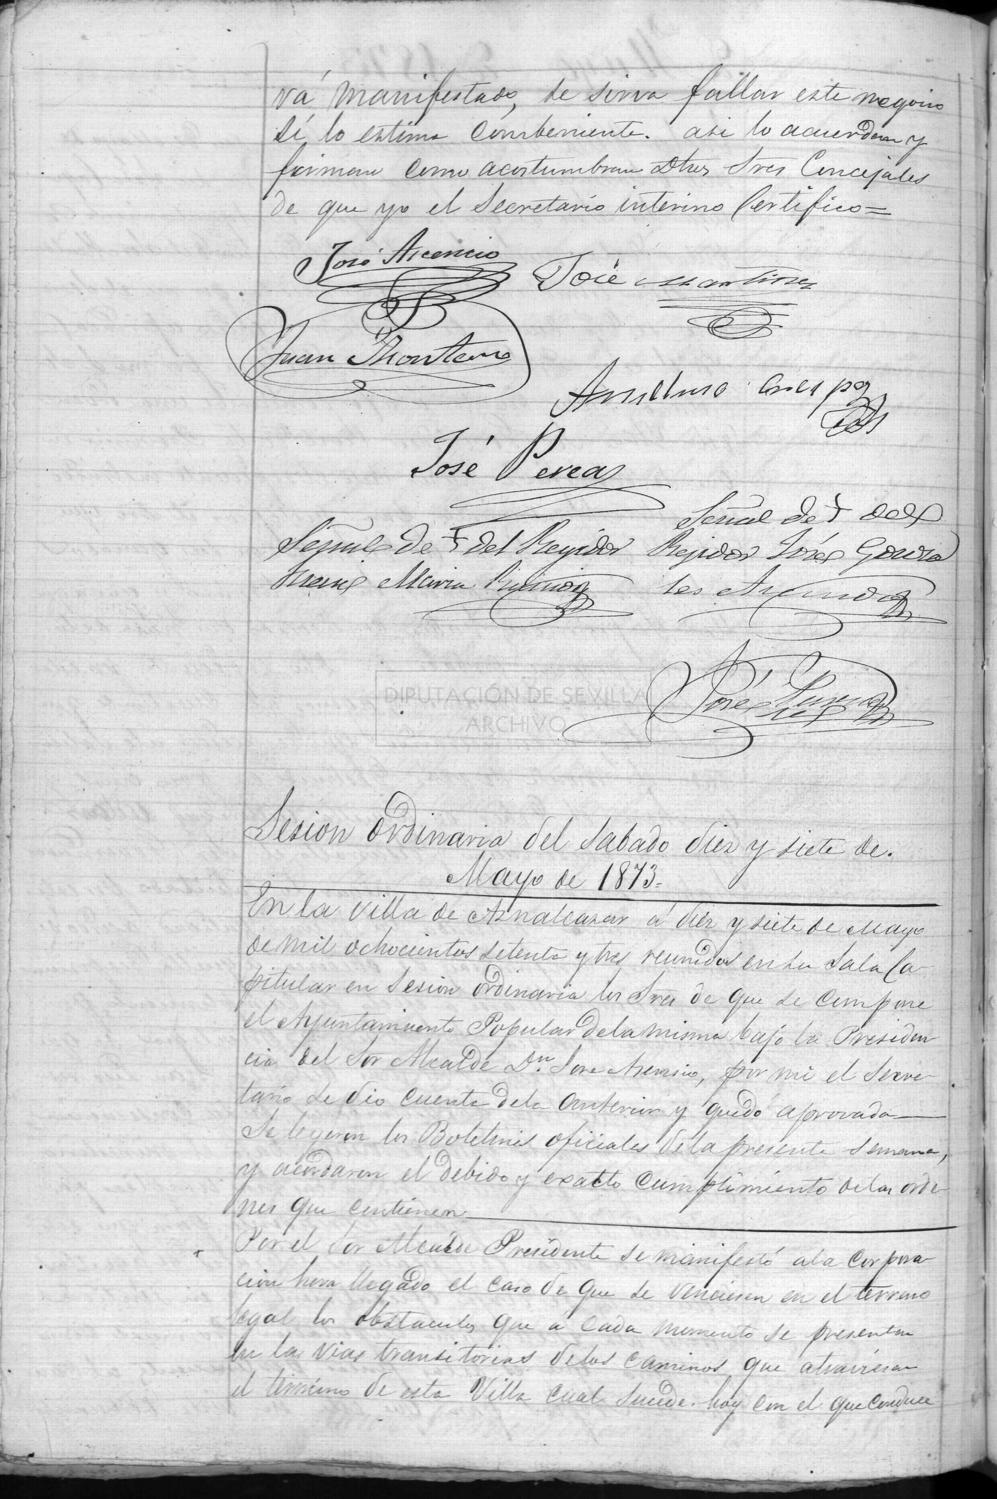 vá manifestado, se sirva fallar este negocio
sí lo estima combeniente. asi lo acuerdan y
firman como acostumbran dhos Sres Concejales
de que yo el Secretario interino Certifico=
José Asencio
José Martinez
Juan Montero
Anselmo Crespo
José Perea
Señal de † del
Señal de † del Regidor
Regidor José Garcia
Maria
José
DIPUTACIÓN DE SEVILLA
ARCHIVO
Sesion Ordinaria del Sabado diez y siete de.
Mayo de 1873.
En la Villa de Aznalcazar á diez y siete de Mayo
de mil ochocientos setenta y tres reunidos en su Sala Ca
pitular en Sesion ordinaria los Sres de que se compone
el Ayuntamiento Popular dela misma bajo la Presiden
cia del Sor Alcalde Dn. Jose Asencio, por mi el Secre
tario se dio cuenta dela anterior y quedó aprovada
Se leyeron los Boletines oficiales de la presente semana,
y acordaron el debido y exacto cumplimiento delas orde
nes que contienen
Por el Sor Alcalde Presidente se manifestó ala corpora
cion hera llegado el caso de que se venciesen en el terreno
legal los obstaculos que á cada momento se presentan
en las vias transitorias delos caminos que atraviesan
el termino de esta Villa cual sucede hoy con el que conduce